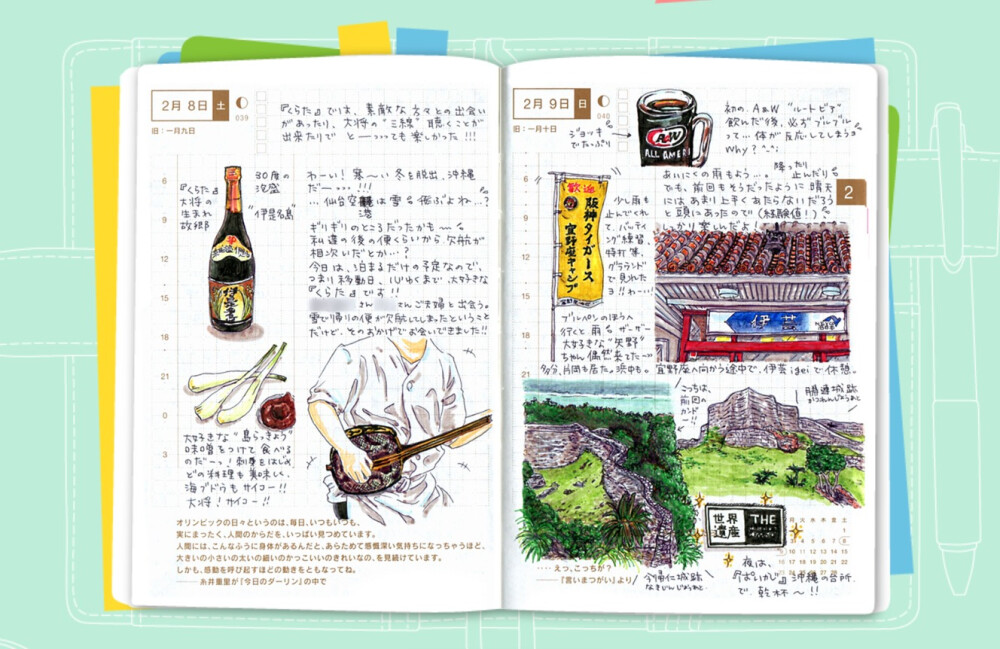 2月 8日 土
039
旧:一月九日
『くらた』では、素敵な方々との出会い
があったり、大将の"三線"聴くことが
出来たりで と———っても楽しかった!!!
6
9
12
15
18
21
0
3
『くらた』
大将の
生まれ
故郷
30度の
泡盛
"伊是名島"
わーい!寒〜い冬を脱出、沖縄
だー!!!
…仙台空港は雪も飛ぶよね…?
ギリギリのところだったかも〜
私達の後の便くらいから欠航が
相次いだとか…?
今日は、泊まるだけの予定なので、
つまり移動日。心ゆくまで、大好きな
『くらた』です!!
さん さんご夫婦と出会う。
雪で帰りの便が欠航してしまったということ
だけど、そのおかげでお会いできました!!
大好きな"島らっきょう"
味噌をつけて食べる
のだーっ!刺身をはじめ
どの料理も美味しい、
海ブドウもサイコー!!
大将!サイコー!!
オリンピックの日々というのは、毎日、いつもいつも、
実にまったく、人間のからだを、いっぱい見つめています。
人間には、こんなふうに身体があるんだと、あらためて感慨深い気持ちになっちゃうほど、
大きいの小さいの太いの細いのかっこいいのきれいなの、を見続けています。
しかも、感動を呼び起すほどの動きをともなってね。
——— 糸井重里が『今日のダーリン』の中で
2月 9日 日
040
旧:一月十日
ジョッキ
でたっぷり
A&W
ALL AMERI
初の A&W "ルートビア"
飲んだ後、必ずブルブル
って…体が反応してしまう
Why?^_^;
あいにくの雨もよう…。降ったり 止んだり
でも、前回もそうだったように晴天
にはあまり上手くあたらないだろう
と頭にあったので(経験値!)
しっかり楽しんだよ!
2
6
9
12
15
18
21
歓迎
阪神タイガース
宜野座キャンプ
少し雨も
止んでくれ
て、バッティ
ング練習、
特打等、
グラウンド
で見れた
ヨ!!わーい
ブルペンのほうへ
行くと雨もザーザー
大好きな"矢野"
ちゃん偶然来てた〜
多分、片岡も居た。浜中も。
伊芸
宜野座へ向かう途中で、伊芸 igei で休憩。
こっちは、
前回の
カンドー!!
勝連城跡
かつれんじょうあと
世界
遺産
THE
月 火 水 木 金 土
・・・・えっ、こっちが?
———『言いまつがい』より
今帰仁城跡
なきじんじょうあと
夜は、
沖縄の台所
で、乾杯〜!!